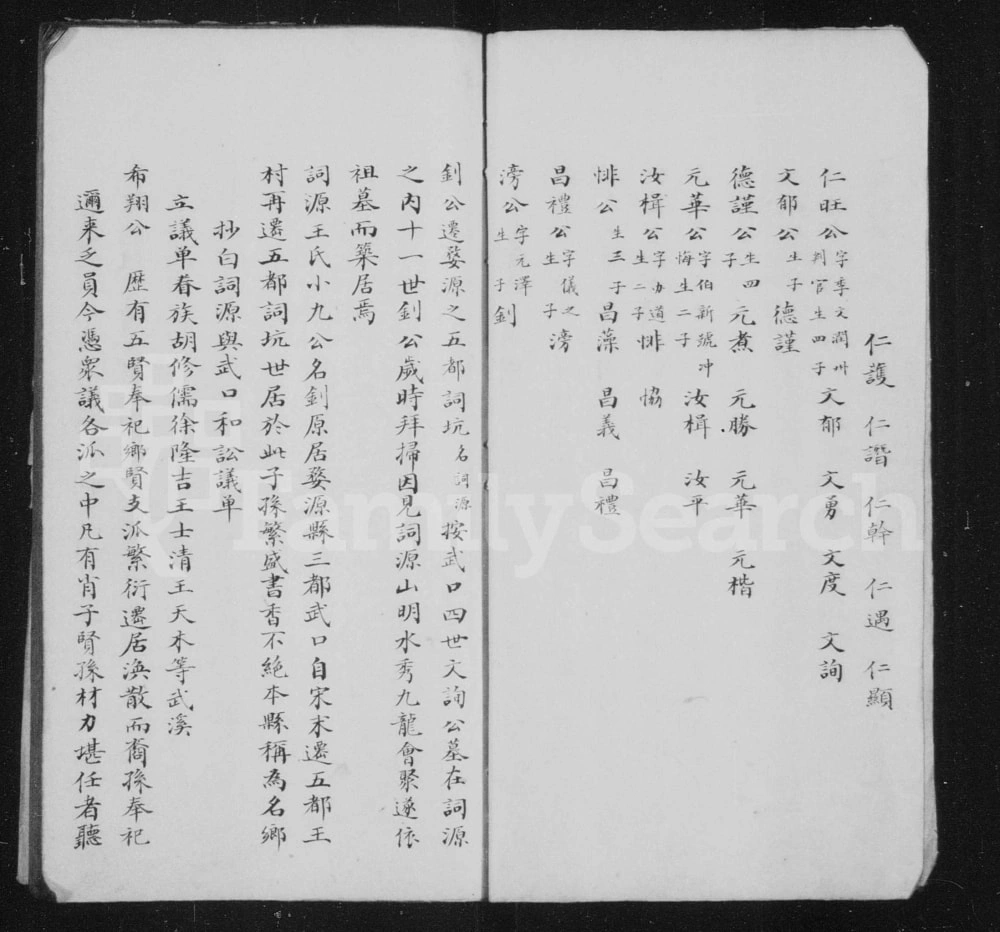 仁護 仁諧 仁幹 仁遇 仁顯
仁旺公字季文潤州判官生四子文郁 文勇 文度 文詢
文郁公生子德謹
德謹公生四子元煮 元勝 元華 元楷
元華公字伯新號冲悔生二子汝楫 汝平
汝楫公字办道生二子悱 恊
悱公生三子昌藻 昌義 昌禮
昌禮公字儀之生子滂
滂公字元澤生子釗
釗公遷婺源之五都詞坑名詞源按武口四世文詢公墓在詞源
之内十一世釗公歲時拜掃因見詞源山明水秀九龍會聚遂依
祖墓而築居焉
詞源王氏小九公名釗原居婺源縣三都武口自宋末遷五都王
村再遷五都詞坑世居於此子孫繁盛書香不絶本縣稱為名鄉
抄白詞源與武口和訟議单
立議单眷族胡修儒徐隆吉王士清王天本等武溪
希翔公 歷有五賢奉祀鄉賢支派繁衍遷居渙散而裔孫奉祀
邇来乏員今憑衆議各派之中凡有肖子賢孫材力堪任者聽
FamilySearch